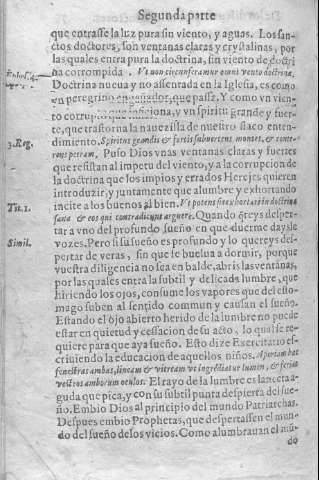 Segunda parte
que entrasse la luz pura sin viento, y aguas. Los san-
ctos doctores, son ventanas claras y crystalinas, por
las quales entra pura la doctrina, sin viento de doctri
na corrompida. Vt non circunferamur omni vento doctrinæ.
Doctrina nueua y no assentada en la Iglesia, es como
vn peregrino engañador, que passa. Y como vn vien-
to corrupto que inficiona, y vn spiritu grande y fuer-
te, que trastorna la nauezilla de nuestro flaco enten-
3.Reg.
dimiento. Spiritus grandis & fortis subuertens montes, & conte-
rens petram. Puso Dios vnas ventanas claras y fuertes
que resistan al impetu del viento, y a la corrupcion de
la doctrina que los impios y errados Herejes quieren
introduzir, y juntamente que alumbre y exhortando
Tit.1.
incite a los buenos al bien. Vt potens sit exhortari in doctrina
sana & eos qui contradicunt arguere. Quando quereys desper-
tar a vno del profundo sueño en que duerme days le
Simil.
vozes. Pero si su sueño es profundo y lo quereys des-
pertar de veras, sin que se buelua a dormir, porque
vuestra diligencia no sea en balde, abris las ventanas,
por las quales entra la subtil y delicada lumbre, que
hiriendo los ojos, consume los vapores que del esto-
mago suben al sentido commun y causan el sueño.
Estando el ojo abierto herido de la lumbre no puede
estar en quietud y cessacion de su acto, lo qual se re-
quiere para que aya sueño. Esto dize Exercitario es-
criuiendo la educacion de aquellos niños. Aperiam bat
fenestras ambas, lineam & vitream vt ingrediatur lumen, & feriat
vestros amborum oculos. El rayo de la lumbre es lanceta a-
guda que pica, y con su subtil punta despierta del sue-
ño. Embio Dios al principio del mundo Patriarchas.
Despues embio Prophetas, que despertassen el mun-
do del sueño de los vicios. Como alumbrauan el mũ-
do